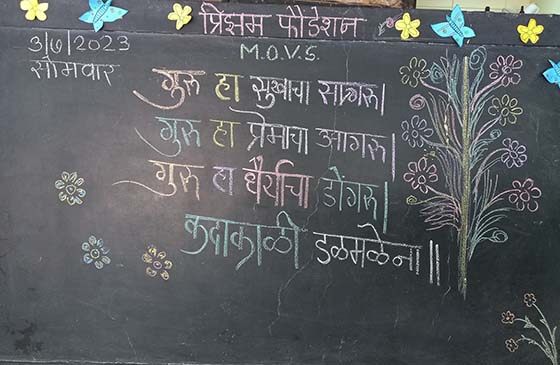 प्रिझम फौंडेशन
M.O.V.S.
3/7/2023
सोमवार
गुरू हा सुखाचा सागरू।
गुरू हा प्रेमाचा आगरू।
गुरू हा धैर्याचा डोंगरू।
कदाकाळी डळमळेना॥